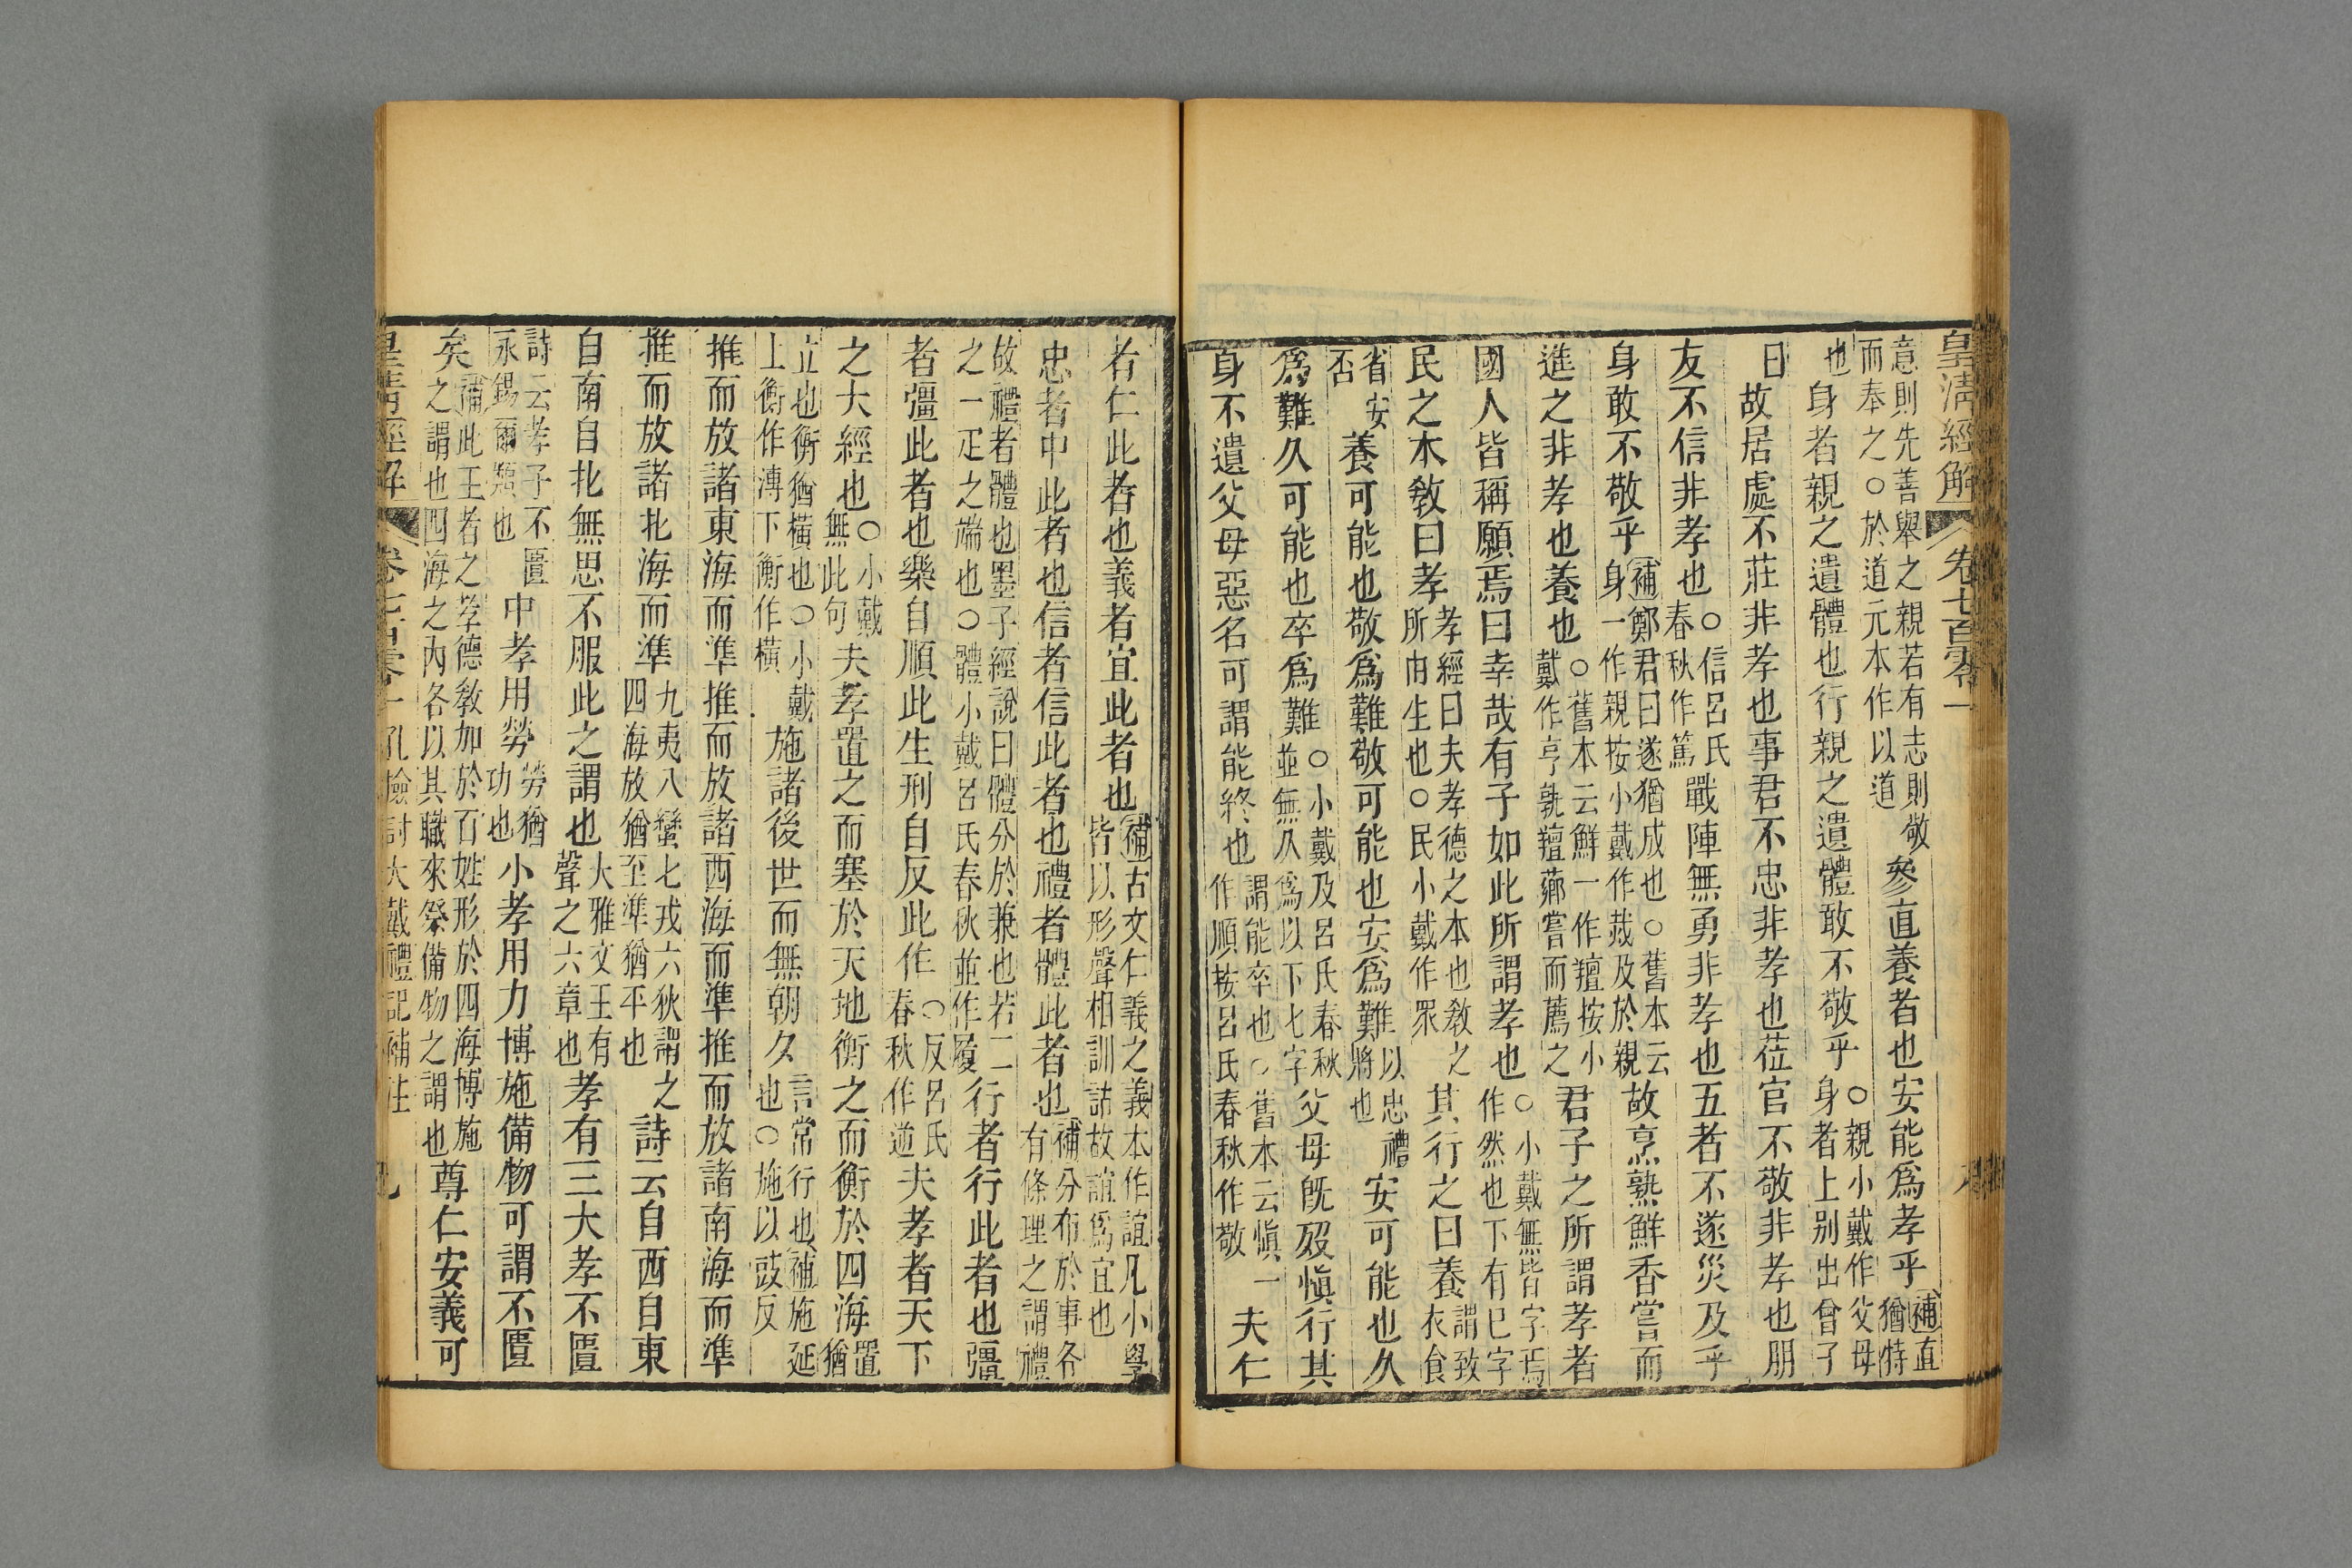 皇清經解　卷七百零一
意則先善舉之親若有志則敬
而奉之○於道元本作以道
參直養者也安能爲孝乎
補直
猶特
也
身者親之遺體也行親之遺體敢不敬乎
○親小戴作父母
身者上别出曾子
曰
故居處不莊非孝也事君不忠非孝也莅官不敬非孝也朋
友不信非孝也
○信呂氏
春秋作篤
戰陣無勇非孝也五者不遂災及乎
身敢不敬乎
補鄭君曰遂猶成也○舊本云
身一作親按小戴作烖及於親
故烹熟鮮香嘗而
進之非孝也養也
○舊本云鮮一作羶按小
戴作亨孰羶薌嘗而薦之
君子之所謂孝者
國人皆稱願焉曰幸哉有子如此所謂孝也
○小戴無皆字焉
作然也下有巳字
民之本敎曰孝
孝經曰夫孝德之本也敎之
所由生也○民小戴作眾
其行之曰養
謂致
衣食
省安
否
養可能也敬爲難敬可能也安爲難
以忠禮
將也
安可能也久
爲難久可能也卒爲難
○小戴及呂氏春秋
並無久爲以下七字
父母旣歿愼行其
身不遺父母惡名可謂能終也
謂能卒也○舊本云愼一
作順按呂氏春秋作敬
夫仁
者仁此者也義者宜此者也
補古文仁義之義本作誼凡小學
皆以形聲相訓詁故誼爲宜也
忠者中此者也信者信此者也禮者體此者也
補分布於事各
有條理之謂禮
故禮者體也墨子經說曰體分於兼也若二
之一尺之端也○體小戴呂氏春秋並作履
行者行此者也彊
者彊此者也樂自順此生刑自反此作
○反呂氏
春秋作逆
夫孝者天下
之大經也
○小戴
無此句
夫孝置之而塞於天地衡之而衡於四海
置
猶
立也衡猶橫也○小戴
上衡作溥下衡作橫
施諸後世而無朝夕
言常行也補施延
也○施以豉反
推而放諸東海而準推而放諸西海而準推而放諸南海而準
推而放諸北海而準
九夷八蠻七戎六狄謂之
四海放猶至準猶平也
詩云自西自東
自南自北無思不服此之謂也
大雅文王有
聲之六章也
孝有三大孝不匱
詩云孝子不匱
永錫爾類也
中孝用勞
勞猶
功也
小孝用力博施備物可謂不匱
矣
補此王者之孝德敎加於百姓形於四海博施
之謂也四海之內各以其職來祭備物之謂也
尊仁安義可
皇清經解　卷七百零一　孔檢討大戴禮記補注　九